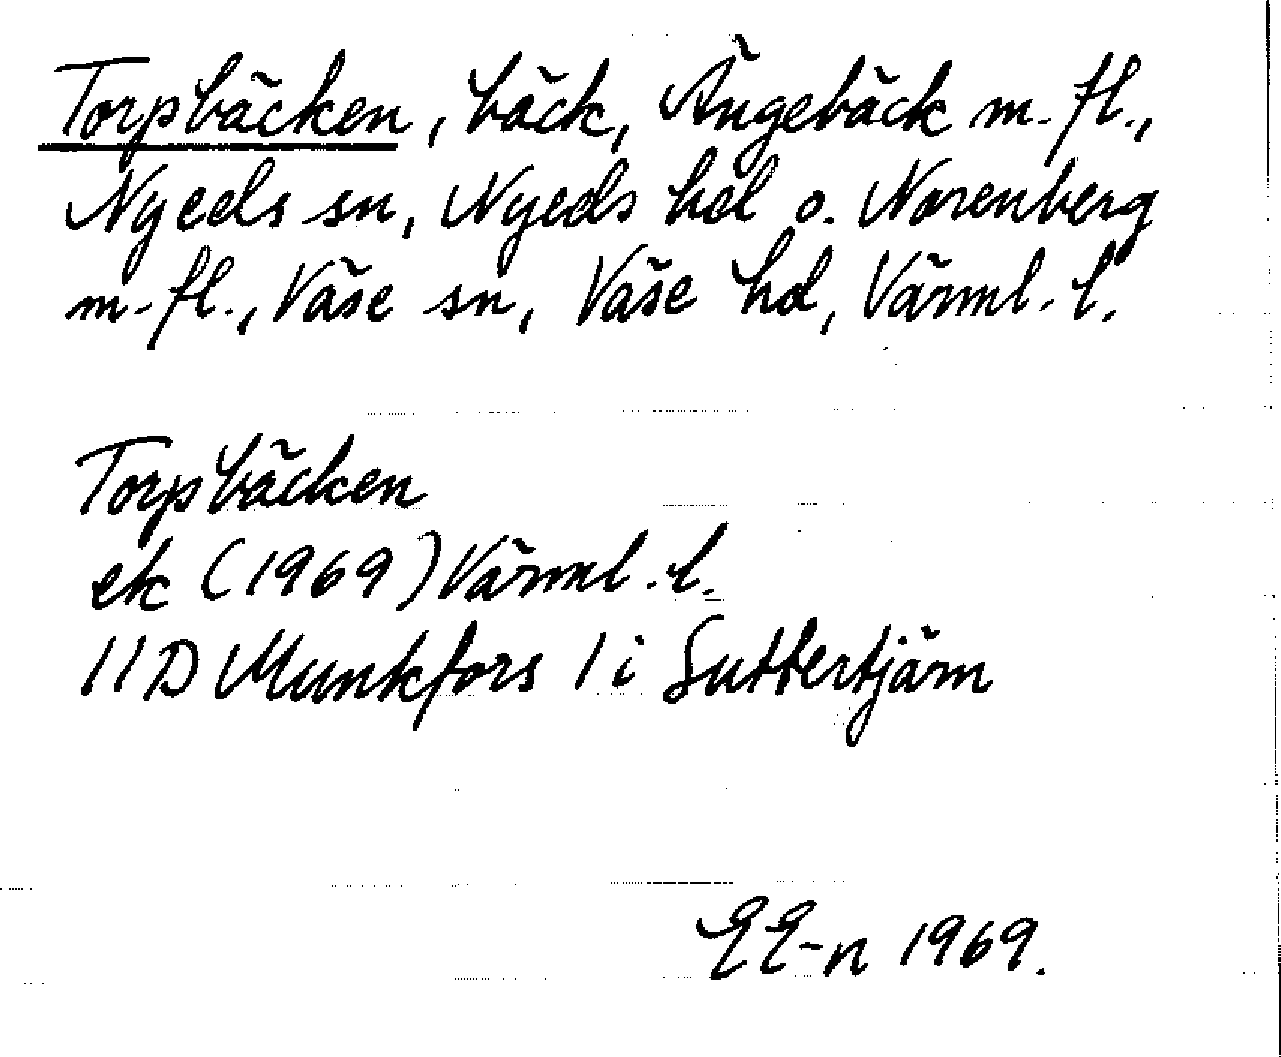 Torpbäcken, bäck, Ängebäck m. fl.,
Nyeds sn, Nyeds hd o. Norenberg
m. fl., Väse sn, Väse hd, Värml. l.
Torpbäcken
ek (1969) Värml. l.
11D Munkfors 1 i Suttertjärn
EE-n 1969.